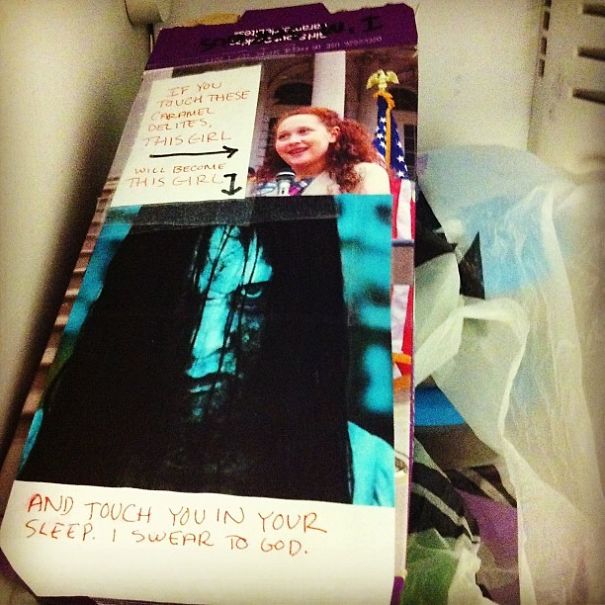 IF YOU
TOUCH THESE
CARAMEL
DELITES,
THIS GIRL
WILL BECOME
THIS GIRL
AND TOUCH YOU IN YOUR
SLEEP. I SWEAR TO GOD.